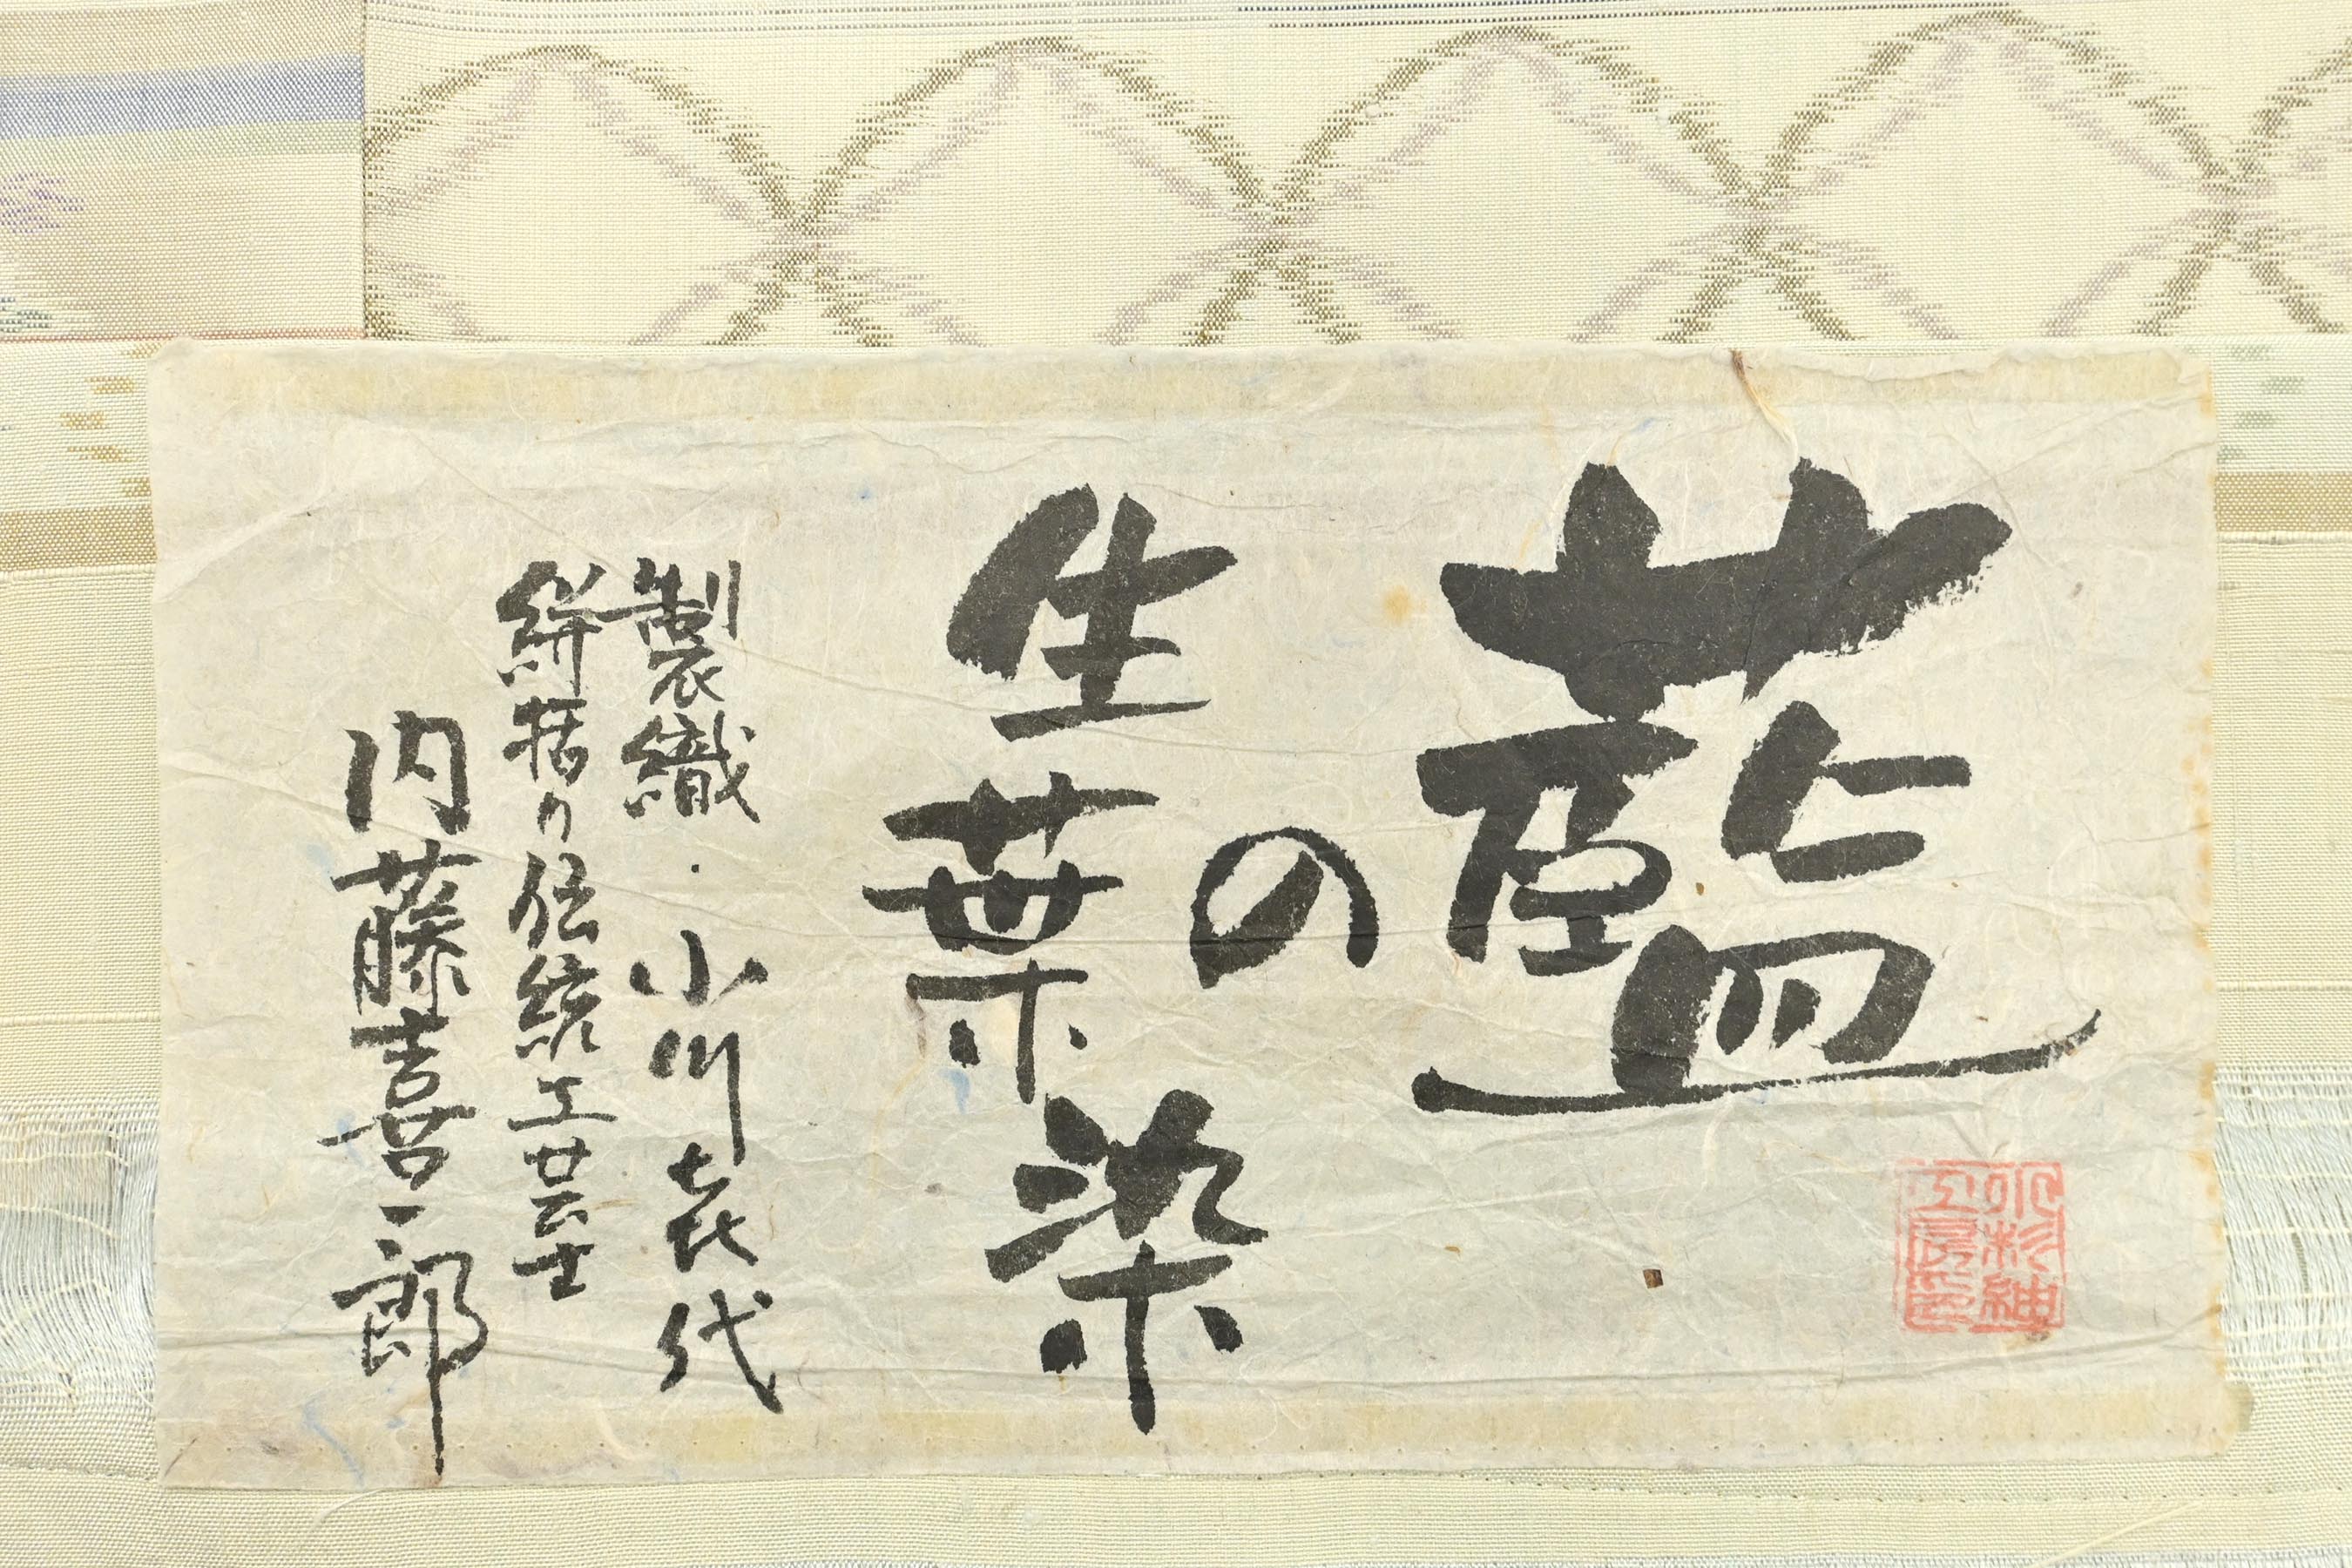 藍
の
生葉染
製織・小川㐂代
絣括り伝統工芸士
内藤喜一郎